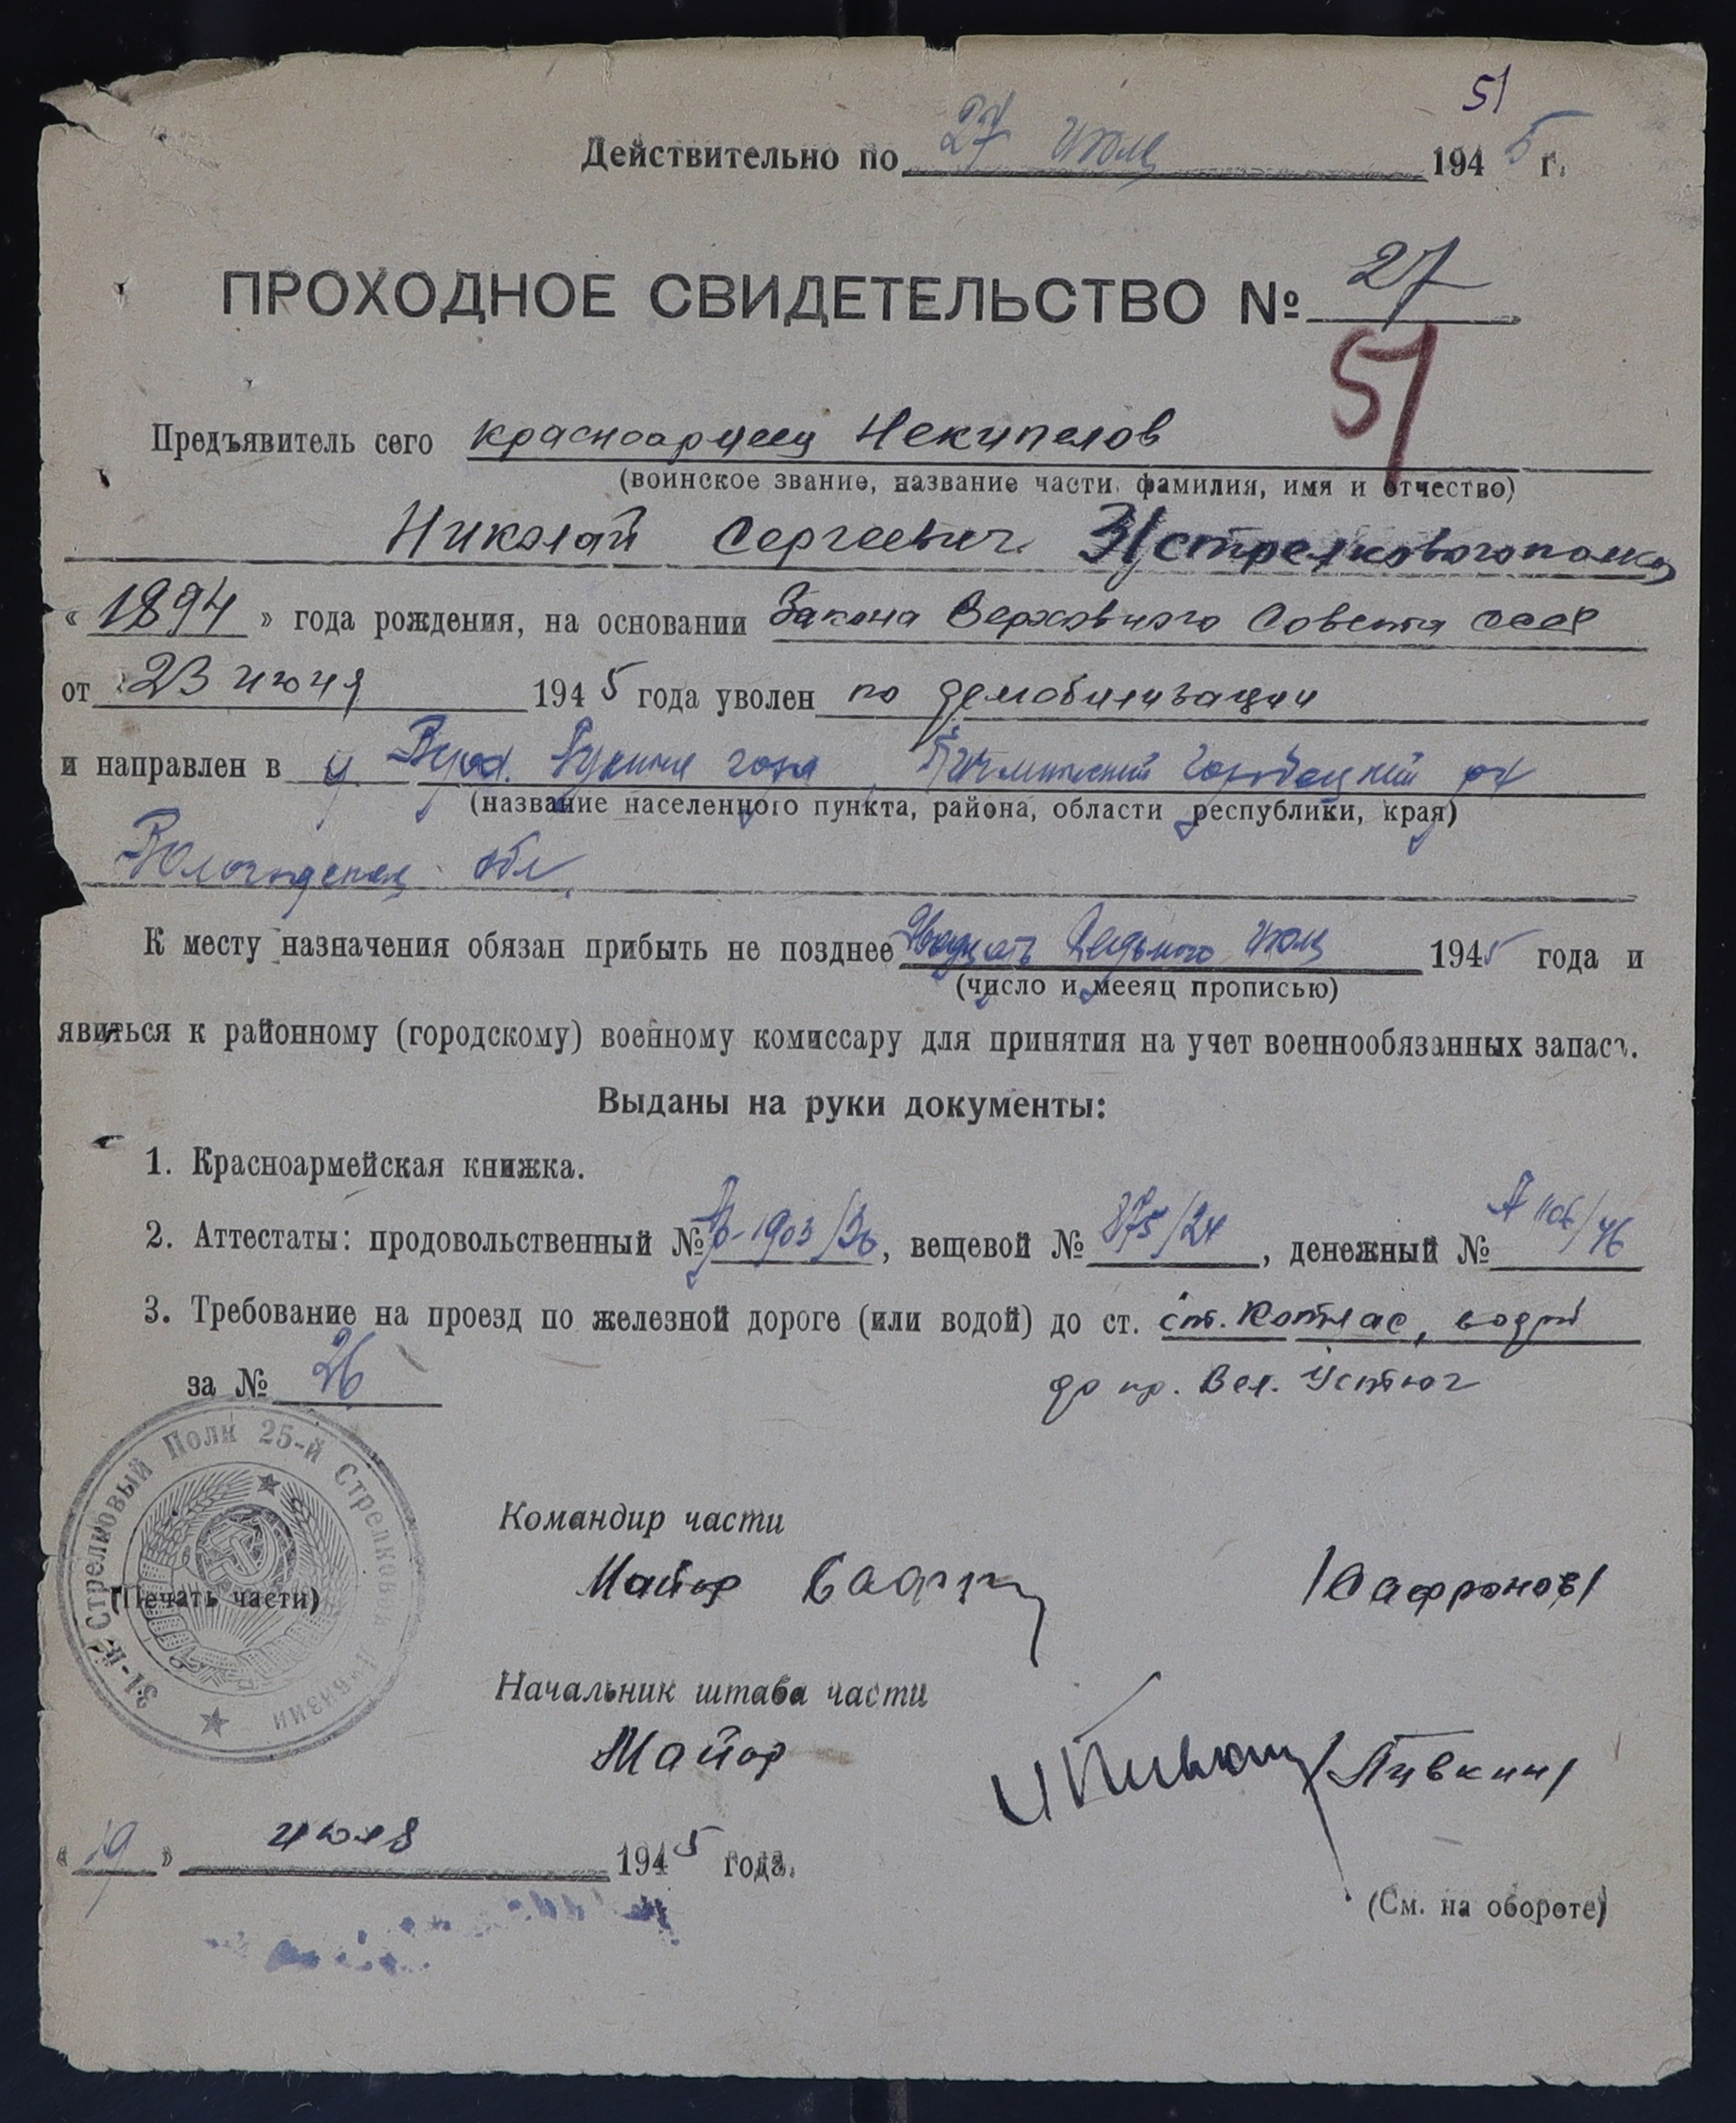 51
Действительно по 27 июля 1945 г.
ПРОХОДНОЕ СВИДЕТЕЛЬСТВО № 27
51
Предъявитель сего красноармеец Некипелов
(воинское звание, название части, фамилия, имя и отчество)
Николай Сергеевич 31 стрелкового полка
« 1894 » года рождения, на основании Закона Верховного Совета СССР
от 23 июня 1945 года уволен по демобилизации
и направлен в гора, Городецкий
(название населенного пункта, района, области республики, края)
Вологодская обл.
К месту назначения обязан прибыть не позднее Двадцать Седьмого июля 1945 года и
(число и месяц прописью)
явиться к районному (городскому) военному комиссару для принятия на учет военнообязанных запаса.
Выданы на руки документы:
1. Красноармейская книжка.
2. Аттестаты: продовольственный № 1903/36, вещевой № 875/24, денежный № А 1106/46
3. Требование на проезд по железной дороге (или водой) до ст. ст. Котлас, водой
до пр. Вел. Устюг
за № 26
31-й Стрелковый Полк 25-й Стрелковой Дивизии
(Печать части)
Командир части
Майор /Сафронов/
Начальник штаба части
Майор /Пивкин/
« 19 » июля 1945 года.
(См. на обороте)